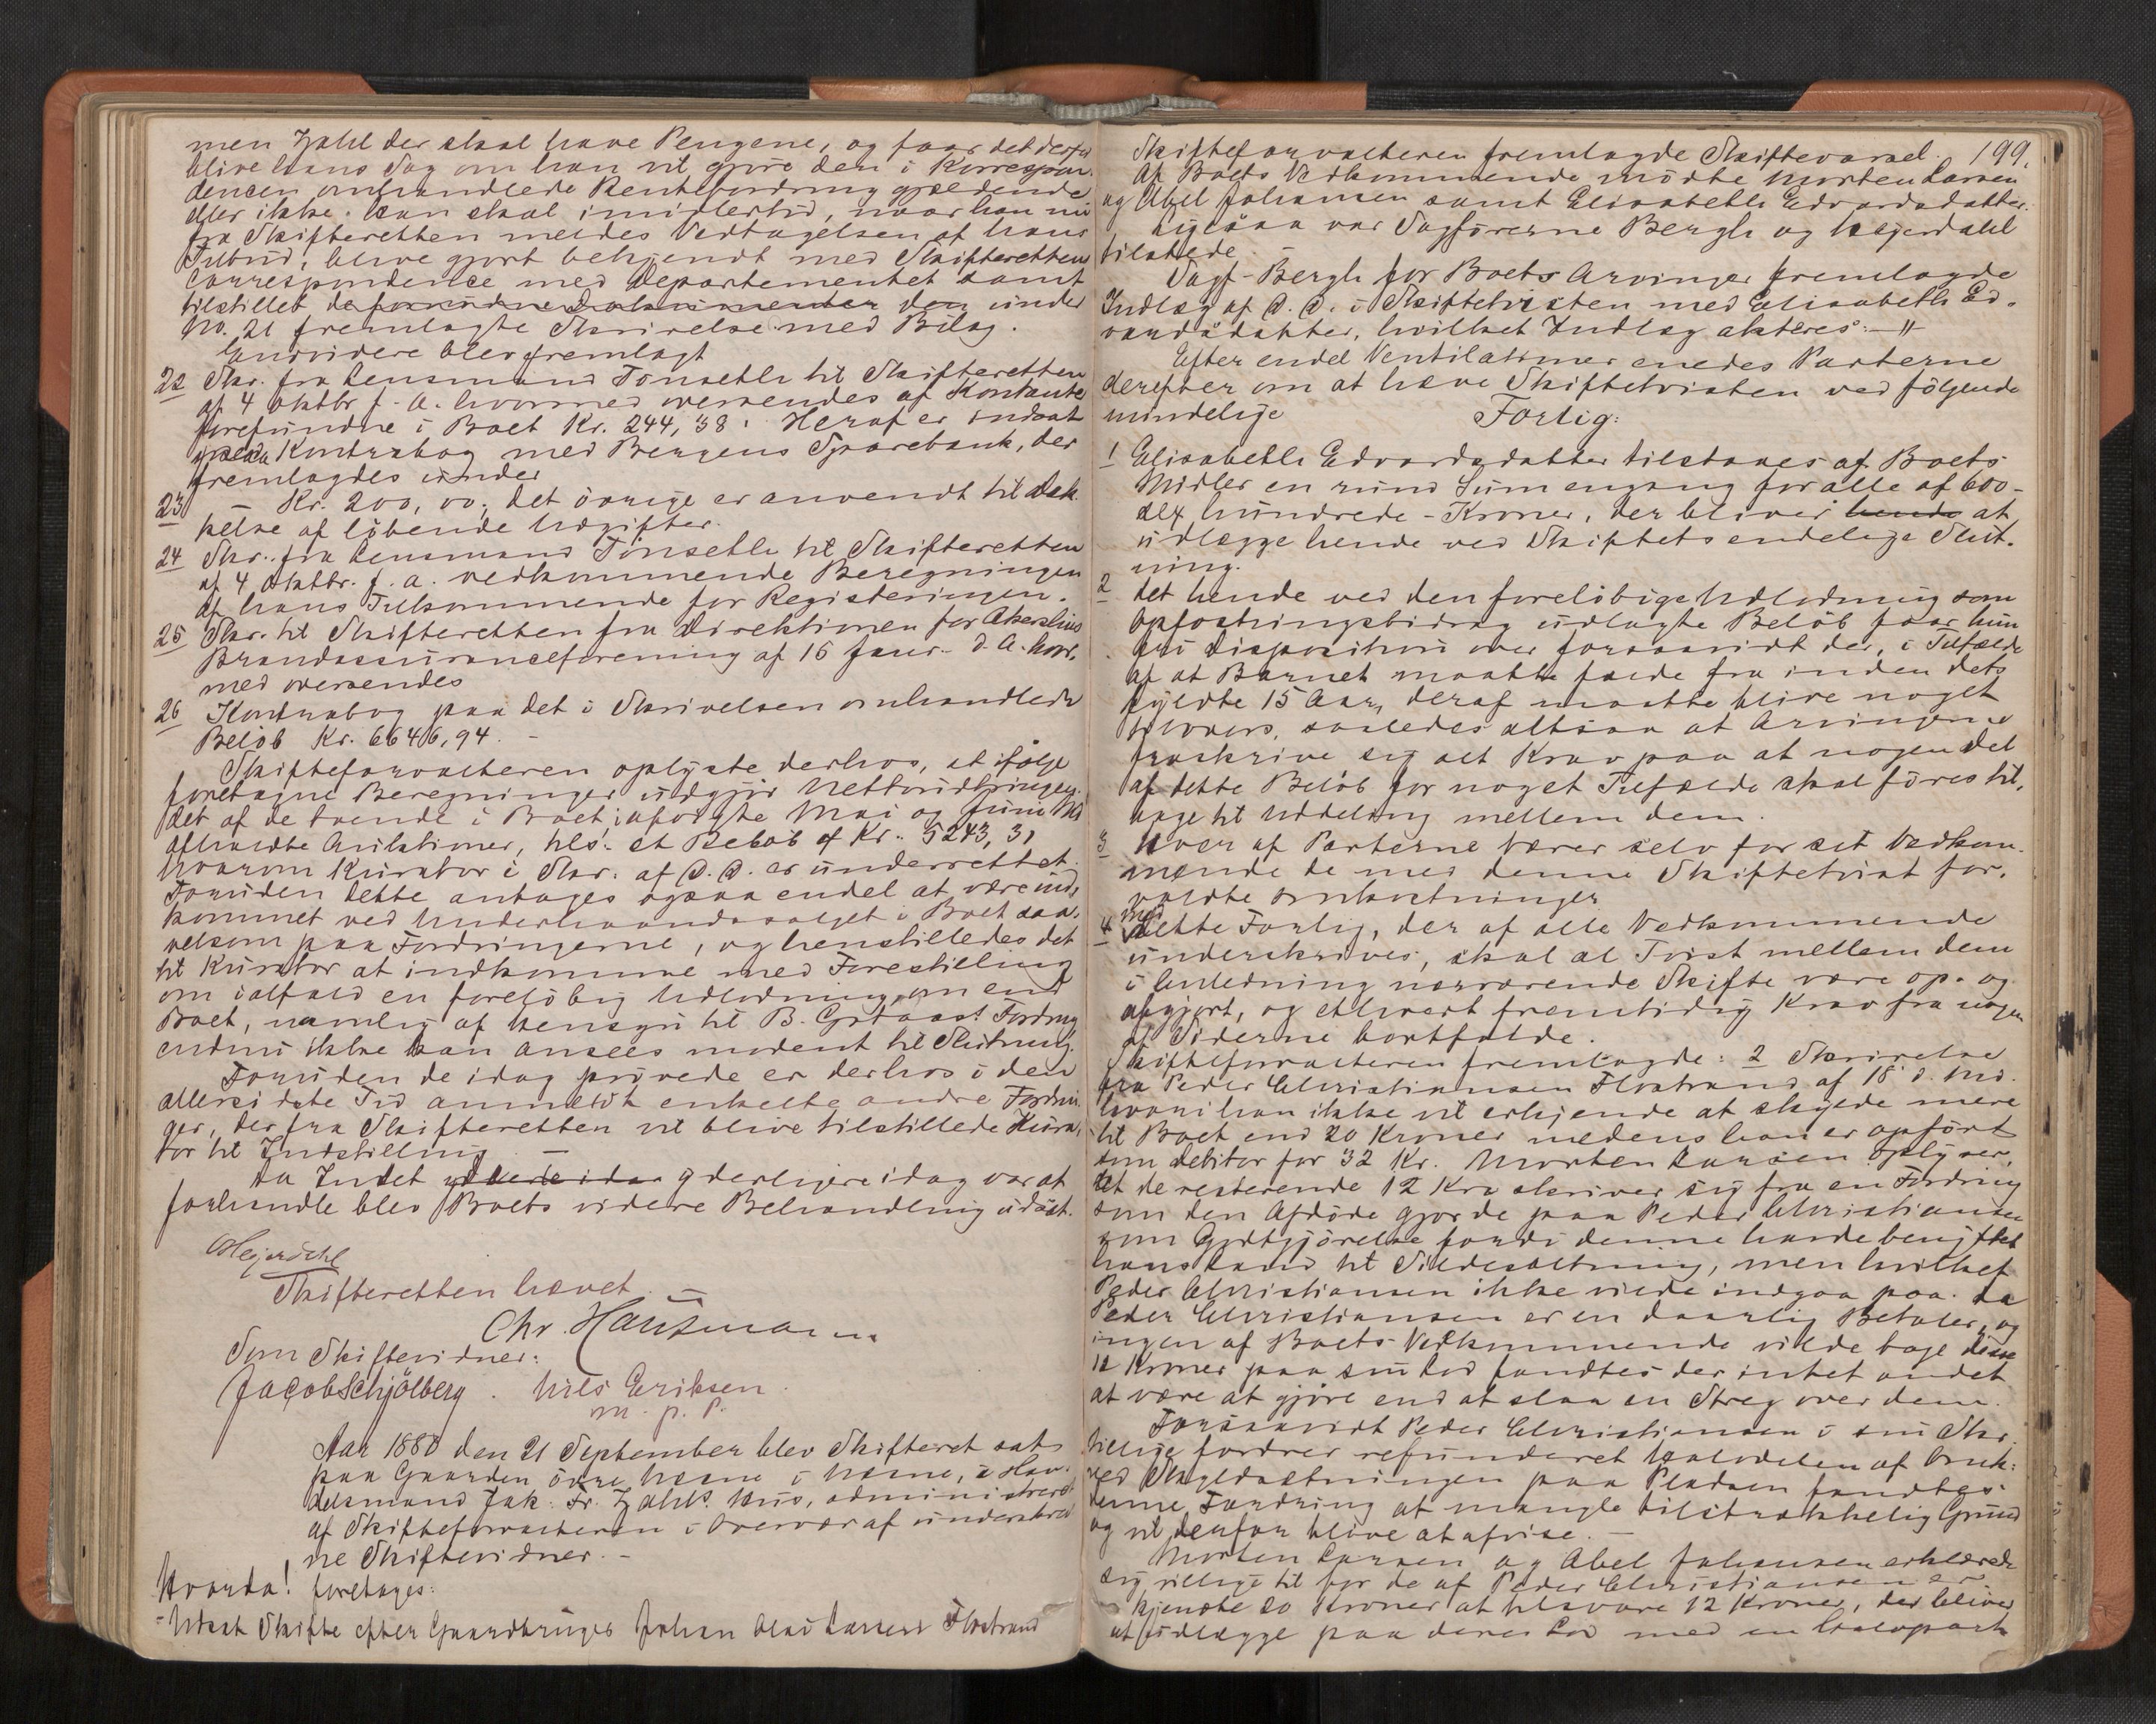 men Zahl der skal have Pengene, og faar det derfor
blive hans Sag om han vil gjøre den i Korrespon-
dencen omhandlede Rentefordring gjældende
eller ikke. Han skal imidlertid, naar han nu
fra Skifteretten meldes Vedtagelsen af hans
Tilbud, blive gjort bekjendt med Skifterettens
Correspondence med Departementet samt
tilstillet de den under
No. 21 fremlagte Skrivelse med Bilag.
Endvidere blev fremlagt
22 Skr. fra Lensmand Tønseth til Skifteretten
af 4 Oktbr f. A. hvormed oversendes af Kontante
forefundne i Boet Kr. 244,38. Heraf er indsat
Kontrabog med Bergens Sparebank, der
fremlagdes under
23 – Kr. 200,00. det øvrige er anvendt til Dæk-
kelse af løbende Udgifter.
24 Skr. fra Lensmand Tønseth til Skifteretten
af 4 Oktbr. f. A. vedkommende Beregningen
af hans Tilkommende for Registeringen.
25 Skr. til Skifteretten fra Direktionen for Akershus
Brandassuranceforening af 16 Janr. d. A. hvor-
med oversendes
26 Kontrabog paa det i Skrivelsen omhandlede
Beløb Kr. 6646,94. –
Skifteforvalteren oplyste derhos, at ifølge
foretagne Beregninger udgjør Nettoudbringen-
det af de tvende i Boet i afvigte Mai og Juni Md
afholdte Auktioner, tils. et Beløb af Kr. 5243,31
hvorom Kurator i Skr. af D. D. er underrettet.
Foruden dette antages ogsaa endel at være ind-
kommet ved Underhaandssalget i Boet saa-
velsom paa Fordringerne, og henstilledes det
til Kurator at indkomme med Forestilling
om ialfald en foreløbig Udlodning, om end
Boet, namlig af Hensyn til B. Fordring
endnu ikke kan ansees modent til Slutning.
Foruden de idag prøvede er derhos i den
allersidste Tid anmeldt enkelte andre Fordrin-
ger, der fra Skifteretten vil blive tilstillede Kura-
tor til Indstilling. –
Da Intet yderligere idag var at
forhandle blev Boets videre Behandling udsat.
Hejerdahl
Skifteretten hævet. –
Chr. Hausmann
Som Skiftevidner:
Jacob Schjølberg. Nils Eriksen.
m. p. P.
Aar 1880 den 21 September blev Skifteret sat
paa Gaarden øvre Næsne i Næsne, i Han-
delsmand Jak. Fr. Zahls Hus, administreret
af Skifteforvalteren i Overvær af underskrev-
ne Skiftevidner. –
Hvorda! foretages:
Udsat Skifte efter Gaardbruger Johan Olai Larsen Flostrand
199.
Skifteforvalteren fremlagde Skiftevarsel.
Af Boets Vedkommende mødte Morten Larsen
og Abel Johansen samt Elisabeth Edvardsdatter.
Ligesaa var Sagførerne Bergh og Hejerdahl
tilstede. –
Sagf. Bergh for Boets Arvinger fremlagde
Indlæg af D. D. i Skiftetvisten med Elisabeth Ed-
vardsdatter, hvilket Indlæg akteres: –"–
Efter endel Ventilationer enedes Parterne
derefter om at hæve Skiftetvisten ved følgende
mindelige Forlig:
1 Elisabeth Edvardsdatter tilstaaes af Boets
Midler en rund Sum engang for alle af 600 –
sex hundrede – Kroner, der bliver hende at
udlægge hende ved Skiftets endelige Slut-
ning.
2 Det hende ved den foreløbige Udlodning som
Opfostringsbidrag udlagte Beløb faar hun
fri Disposition over forsaavidt der, i Tilfælde
af at Barnet maatte falde fra inden dets
fyldte 15 Aar, deraf maatte blive noget
tilovers, saaledes altsaa at Arvingerne
fraskrive sig alt Krav paa at nogen Del
af dette Beløb for noget Tilfælde skal føres til-
bage til Uddeling mellem dem.
3 Hver af Parterne bærer selv for sit Vedkom-
mende de med denne Skiftetvist for-
voldte Omkostninger
4 Med dette Forlig, der af alle Vedkommende
underskrives, skal al Tvist mellem dem
i Anledning nærværende Skifte være op- og
afgjort, og ethvert fremtidig Krav fra nogen
af Siderne bortfalde.
Skifteforvalteren fremlagde: 2 Skrivelse
fra Peder Christiansen Flostrand af 18 d. Md.
hvori han ikke vil erkjende at skylde mere
til Boet end 20 Kroner medens han er opført
som Debitor for 32 Kr. Morten Larsen oplyser,
at de resterende 12 Kr. skriver sig fra en Fordring
som den Afdøde gjorde paa Peder Christiansen
som Godtgjørelse fordi denne havde benyttet
hans Land til Sildesaltning, men hvilket
Peder Christiansen ikke vilde indgaa paa. Da
Peder Christiansen er en daarlig Betaler, og
ingen af Boets Vedkommende vilde tage disse
12 Kroner paa sin Lod fandtes der intet andet
at være at gjøre end at slaa en Streg over dem.
Forsaavidt Peder Christiansen i sin Skr.
tillige fordrer refunderet Halvdelen af Omk.
ved Skyldsætningen paa Pladsen fandtes
denne Fordring at mangle tilstrækkelig Grund
og vil derfor blive at afvise. –
Morten Larsen og Abel Johansen erklærede
sig villige til for de af Peder Christiansen er-
kjendte 20 Kroner at tilsvare 12 Kroner, der bliver
at udlægge paa deres Lod med en Halvpart